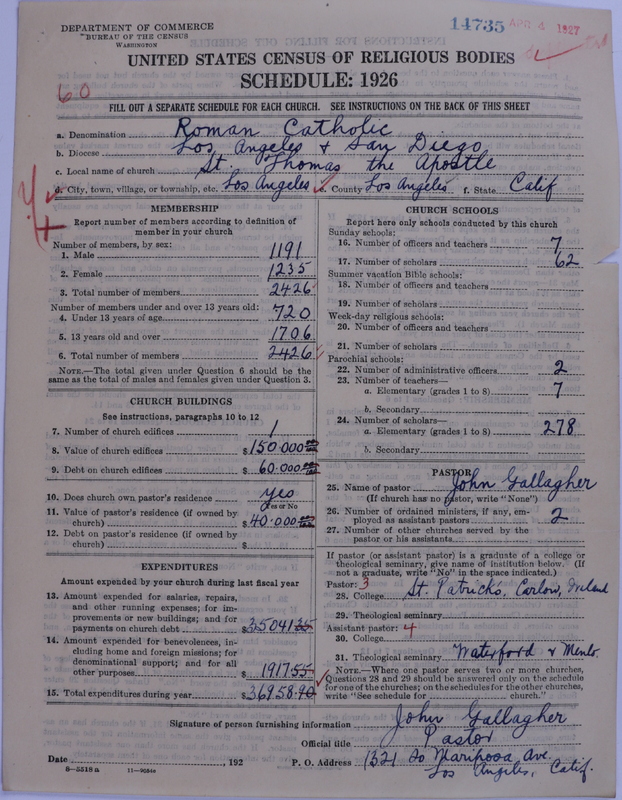 DEPARTMENT OF COMMERCE
BUREAU OF THE CENSUS
WASHINGTON
14735 APR 4 1927
UNITED STATES CENSUS OF RELIGIOUS BODIES
SCHEDULE: 1926
60
FILL OUT A SEPARATE SCHEDULE FOR EACH CHURCH. SEE INSTRUCTIONS ON THE BACK OF THIS SHEET
a. Denomination Roman Catholic
b. Diocese Los Angeles & San Diego
c. Local name of church St. Thomas the Apostle
d. City, town, village, or township, etc. Los Angeles e. County Los Angeles f. State Calif
MEMBERSHIP
Report number of members according to definition of
member in your church
Number of members, by sex:
1. Male 1191
2. Female 1235
3. Total number of members 2426
Number of members under and over 13 years old:
4. Under 13 years of age 720
5. 13 years old and over 1706
6. Total number of members 2426
NOTE.—The total given under Question 6 should be
same as the total of males and females given under Question 3.
CHURCH BUILDINGS
See instructions, paragraphs 10 to 12
7. Number of church edifices 1
8. Value of church edifices $150.000
9. Debt on church edifices $60.000
10. Does church own pastor's residence yes
Yes or No
11. Value of pastor's residence (if owned by
church) $40.000
12. Debt on pastor's residence (if owned by
church) $
EXPENDITURES
Amount expended by your church during last fiscal year
13. Amount expended for salaries, repairs,
and other running expenses; for im-
provements or new buildings; and for
payments on church debt $35041.35
14. Amount expended for benevolences, in-
cluding home and foreign missions; for
denominational support; and for all
other purposes $1917.55
15. Total expenditures during year $36958.90
CHURCH SCHOOLS
Report here only schools conducted by this church
Sunday schools:
16. Number of officers and teachers 7
17. Number of scholars 62
Summer vacation Bible schools:
18. Number of officers and teachers
19. Number of scholars
Week-day religious schools:
20. Number of officers and teachers
21. Number of scholars
Parochial schools:
22. Number of administrative officers 2
23. Number of teachers—
a. Elementary (grades 1 to 8) 7
b. Secondary
24. Number of scholars—
a. Elementary (grades 1 to 8) 278
b. Secondary
PASTOR
25. Name of pastor John Gallagher
(If church has no pastor, write "None")
26. Number of ordained ministers, if any, em-
ployed as assistant pastors 2
27. Number of other churches served by the
pastor or his assistants
If pastor (or assistant pastor) is a graduate of a college or
theological seminary, give name of institution below. (If
not a graduate, write "No" in the space indicated.)
Pastor: 3
28. College St. Patrick's, Carlow, Ireland
29. Theological seminary
Assistant pastor: 4
30. College
31. Theological seminary Waterford & Menlo
NOTE.—Where one pastor serves two or more churches,
Questions 28 and 29 should be answered only on the schedule
for one of the churches; on the schedules for the other churches,
write "See schedule for church."
Signature of person furnishing information John Gallagher
Official title Pastor
Date , 192 P. O. Address 1321 So Mariposa Ave.
Los Angeles, Calif.
8—5518 a 11—9054a